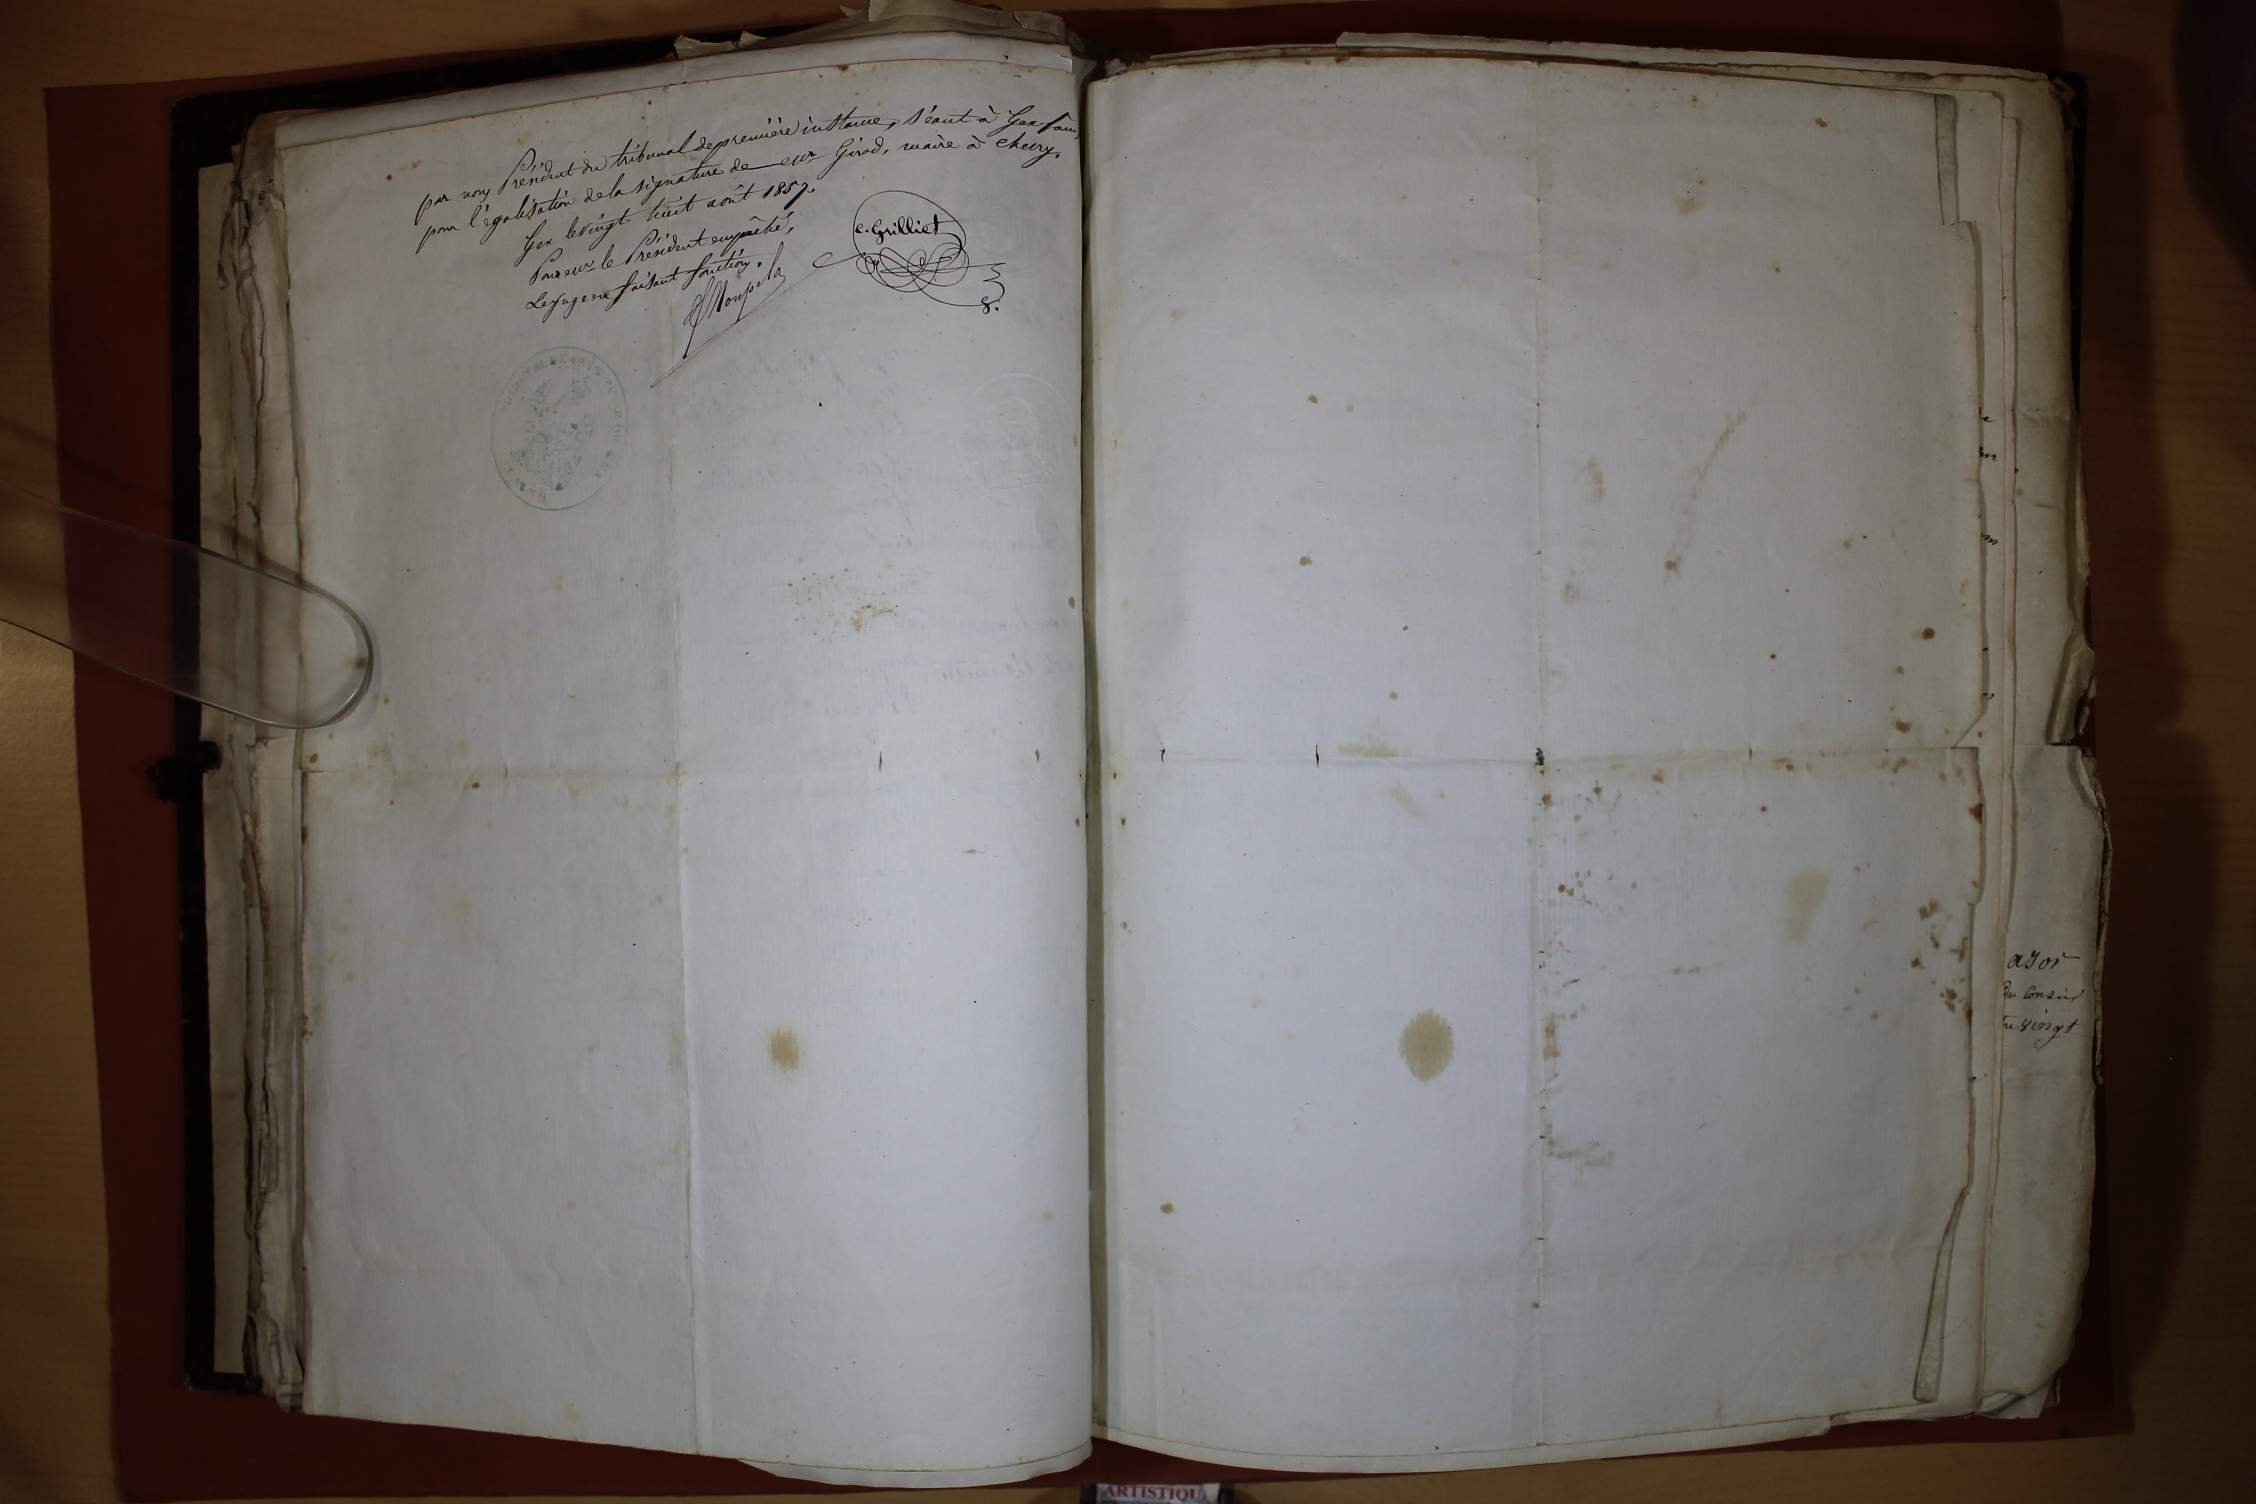 par nous Président du tribunal de première instance, séant à Gex (ain)
pour légalisation de la signature de Mr Girod, maire à Chevry.
Gex le vingt huit août 1857
Pour Mr le Président empêché,
Le juge en faisant fonction.
C. Grilliet
g.
du Consu
tre vingt
ARTISTIQU